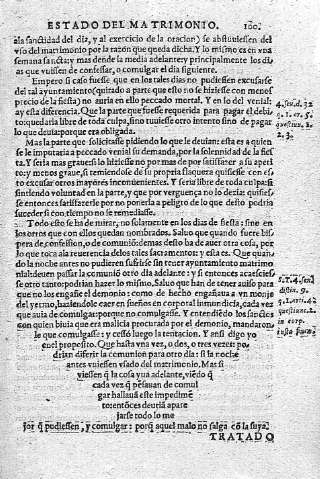 ESTADO DEL MATRIMONIO. 100.
ala sanctidad del dia, y al exercicio de la oracion) se abstuuiessen del
vso del matrimonio por la razon que queda dicha. Y lo mismo es en vna
semana sancta; y mas dende la media adelante: y principalmente los di
as que vuiessen de confessar, o comulgar el dia siguiente.
Empero si caso fuesse, que en los tales dias no pudiessen excusarse
del tal ayuntamiento (quitado a parte que esto no se hiziesse con menos
precio de la fiesta) no auria en ello peccado mortal. Y en lo del venial:
ay esta diferencia. Que la parte que fuesse requerida para pagar el debi
to: quedaria libre de toda culpa, sino tuuiesse otro intento sino de pagar
lo que deuia: porque era obligada.
Mas la parte que solicitasse pidiendo lo que le deuian: esta es a quien
se le imputaria a peccado venial su demanda, por la solennidad de la fiesta.
Y seria mas graue si lo hiziesse no por mas de por satisfazer a su apeti
to; y menos graue, si temiendose de su propria flaqueza quisiesse con es
to excusar otros mayores inconuenientes. Y seria libre de toda culpa: si
sintiendo voluntad en la parte, y que por verguença no lo dezia: quisies
se entonces satisfazerle por no ponerla a peligro de lo que desto podria
suceder si con tiempo no se remediasse.
Todo esto se ha de mirar, no solamente en los dias de fiesta: sino en
los otros que con ellos quedan nombrados. Saluo que quando fuere bis
pera de confession, o de comunió: demas desto ha de auer otra cosa, por
lo que toca ala reuerencia destos tales sacramentos: y esta es. Que quan
do la noche antes no pudieren sufrirse sin tener ayuntamiento matrimo
nial: deuen passar la comunió otro dia adelante: y si entonces acaescies
se otro tanto: podrian hazer lo mismo. Saluo que han de tener auiso para
que no los engañe el demonio: como de hecho engañaua a vn monje
del yermo, haziendole caer en sueños en corporal inmundicia, cada vez
que auia de comulgar: porque no comulgasse. Y entendiédo los sanctos
con quien biuia que era malicia procurada por el demonio, mandaron
le que comulgasse: y cessó luego la tentacion. Y ansi digo yo
enel proposito. Que hasta vna vez, o dos, o tres vezes: po
drian diferir la comunion para otro dia: si la noche
antes vuiessen vsado del matrimonio. Mas si
viessen q̃ la cosa yua adelante, viédo q̃
cada vez q̃ pésauan de comul
gar hallauā este impedimé
to: entóces deuriā apare
jarse todo lo me
jor q̃ pudiessen, y comulgar: porq̃ aquel malo nó salga có la suya.
TRATADO
4. sen. d. 32
q. 1. ar. 5.
quæstiũ. 2.
2. 3.
S. T. 4. sen.
distin. 9.
q. 1. arti. 4.
quæstiunc. 2.
in corp.